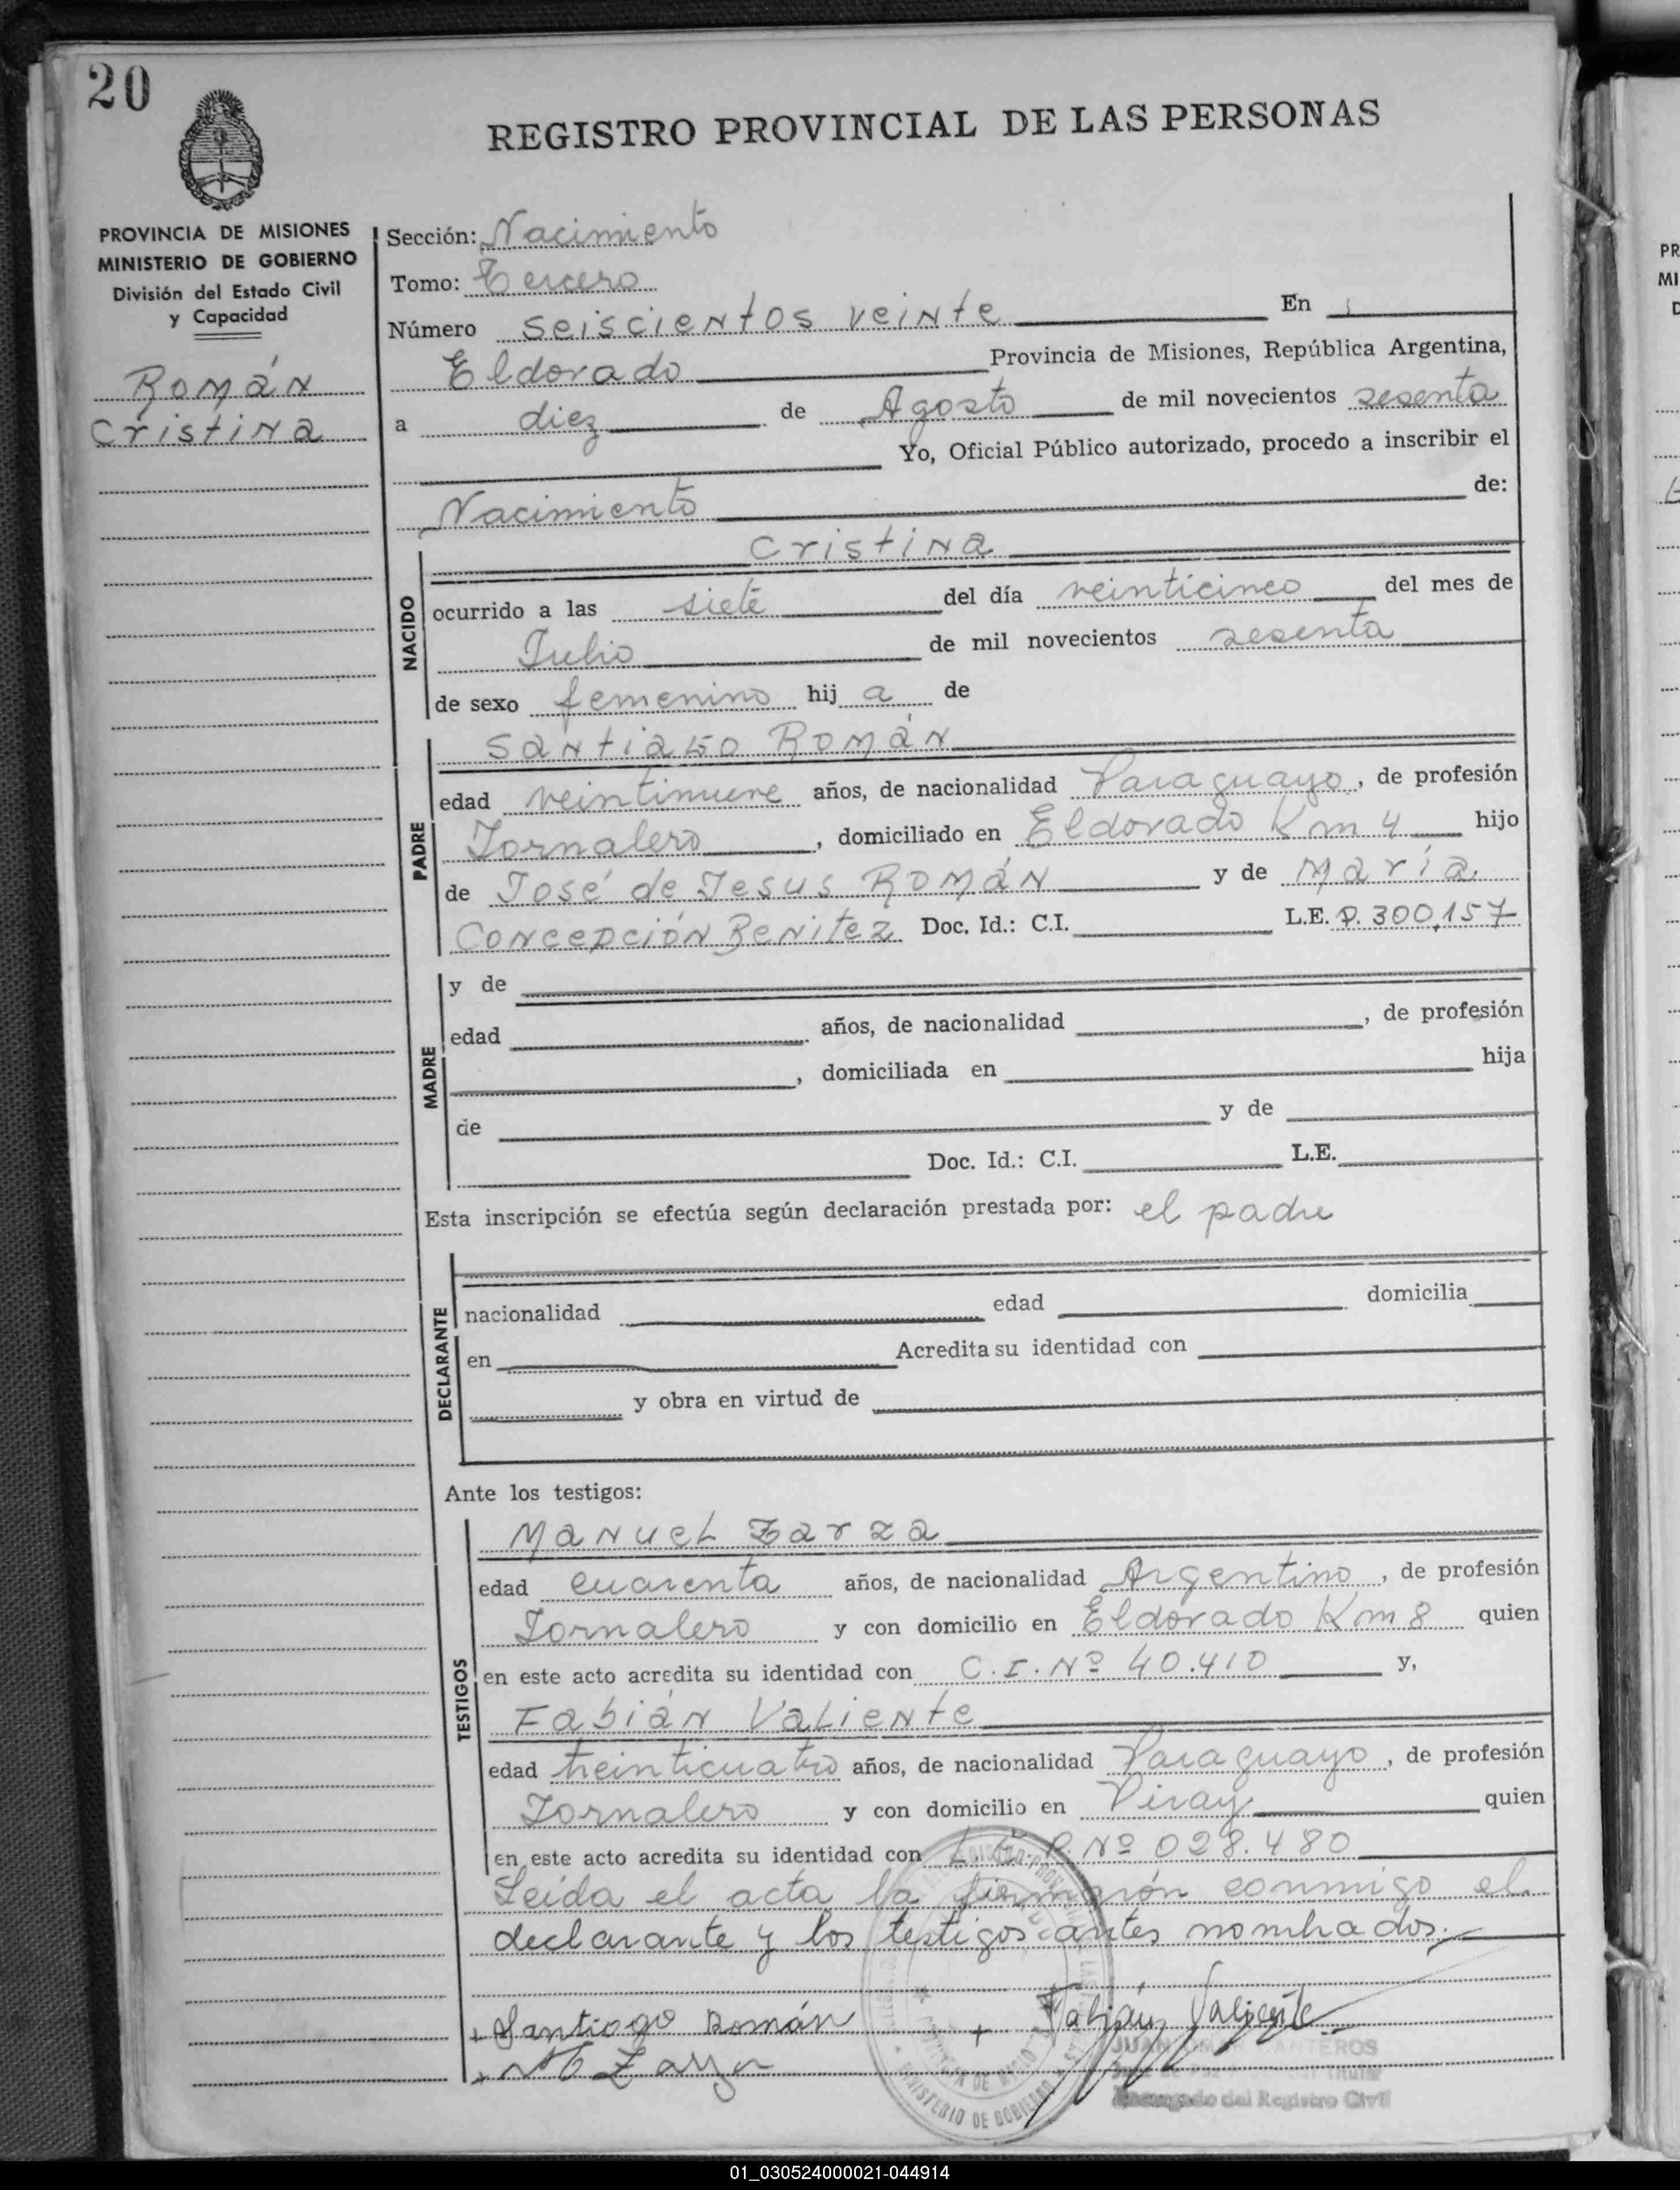 20
REGISTRO PROVINCIAL DE LAS PERSONAS
PROVINCIA DE MISIONES
MINISTERIO DE GOBIERNO
División del Estado Civil
y Capacidad
Román
Cristina
Sección: Nacimiento
Tomo: Tercero
Número seiscientos veinte En
Eldorado Provincia de Misiones, República Argentina,
a diez de Agosto de mil novecientos sesenta
Yo, Oficial Público autorizado, procedo a inscribir el
Nacimiento de:
NACIDO
Cristina
ocurrido a las siete del día veinticinco del mes de
Julio de mil novecientos sesenta
de sexo femenino hij a de
PADRE
Santiago Román
edad veintinueve años, de nacionalidad Paraguayo, de profesión
Jornalero, domiciliado en Eldorado Km 4 hijo
de José de Jesus Román y de María
Concepción Benitez Doc. Id.: C.I. L.E. P. 300,157
MADRE
y de
edad años, de nacionalidad , de profesión
, domiciliada en hija
de y de
Doc. Id.: C.I. L.E.
Esta inscripción se efectúa según declaración prestada por: el padre
DECLARANTE
nacionalidad edad domicilia
en Acredita su identidad con
y obra en virtud de
Ante los testigos:
TESTIGOS
Manuel Zarza
edad cuarenta años, de nacionalidad Argentino, de profesión
Jornalero y con domicilio en Eldorado Km 8 quien
en este acto acredita su identidad con C.I. Nº 40.410 y,
Fabián Valiente
edad treinticuatro años, de nacionalidad Paraguayo, de profesión
Jornalero y con domicilio en Piray quien
en este acto acredita su identidad con L.E.P. Nº 028.480
Leída el acta la firmarón conmigo el
declarante y los testigos antes nombrados.
+ Santiago Román + Fabián Valiente
MINISTERIO DE GOBIERNO
Encargado del Registro Civil
01_030524000021-044914